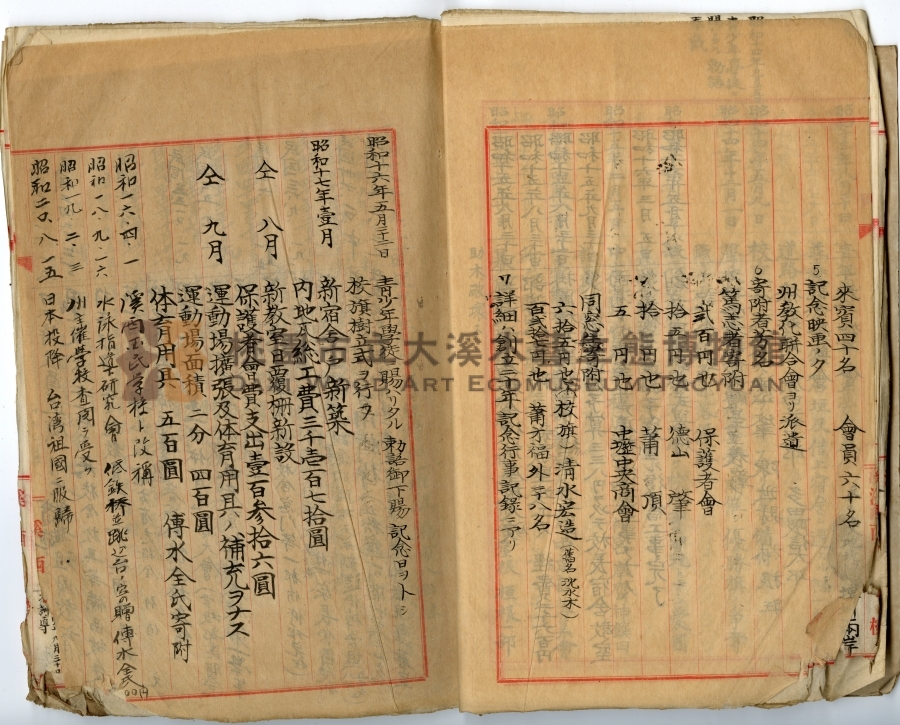 來賓四十名　會員六十名
5 記念映画ノ夕
州教化聯合會ヨリ派遣
6 寄附者芳名
篤志者寄附
弐百円也　保護者會
拾五円也　德山肇
拾円也　蕭頂
五円也　中壢中央商會
同窓會寄附
六拾五円也（校旗）清水宏造（舊名沈水木）
百弐拾七円也　蕭方福外三八名
リ詳細ハ創立二十年記念行事記録ニアリ
昭和十六年五月二十二日　青少年學徒ニ賜ハリタル勅語御下賜記念日ヲトシ
校旗樹立式ヲ行フ
昭和十七年壹月　新宿舍一戸新築
内地人総工費三千壱百七拾圓
仝　八月　新教室日覆棚新設
保護者會費支出壹百参拾六圓
仝　九月　運動場擴張及体育用具ノ補充ヲナス
運動場面積　二分　四百圓
体育用具　五百圓　傳水全氏寄附
昭和一六．四．一　溪西国民学校ト改稱
昭和一八．九．一六　水泳指導研究會　低鉄棒並跳込台
昭和一九．二．三　州主催學校査閲ヲ受ク
昭和二〇．八．一五　日本投降　台湾祖國ニ服歸
大溪木藝生態博物館
Wood Art Ecomuseum Taoyuan